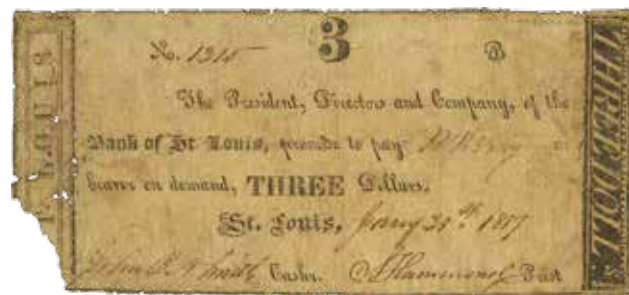 No. 1315 3 B
The President, Directors and Company, of the
Bank of St Louis, promise to pay or
bearer on demand, THREE Dollars.
St. Louis, Jany 31st 1817
John B. N. Smith Cashr. S Hammond Presdt
ST. LOUIS
THREE DOLL